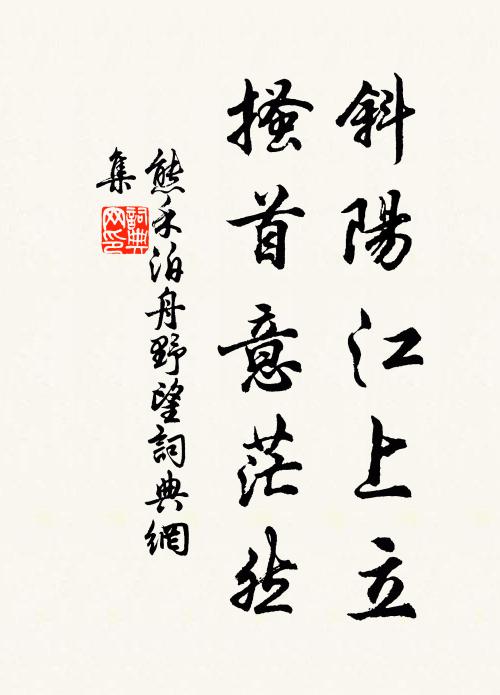 斜陽江上立
搔首意茫然
熊禾泊舟野望詞典網
集
詞典
网印